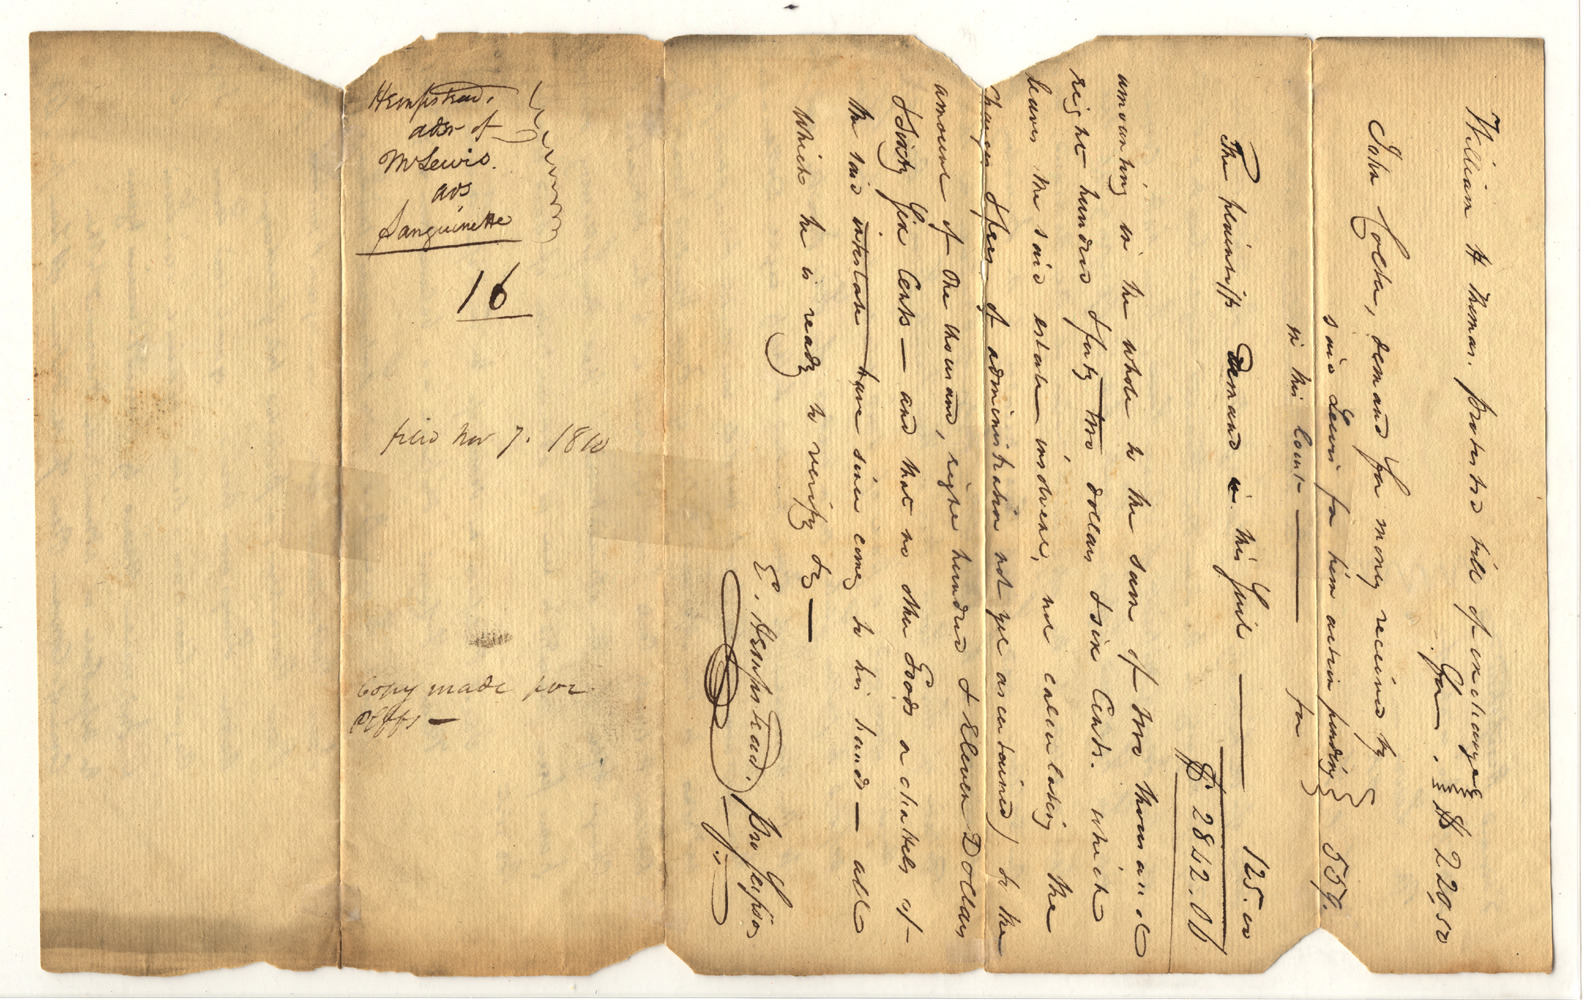 William H Thomas. protested bill of exchange
for. $ 220.50
John Coles, demand for money received by
said Lewis for him action pending 559.
in this Court — for
The plaintiffs Demand in this Suit — 125.00
$ 2842.06
amounting in the whole to the sum of two thousand
eight hundred & forty two dollars & six Cents. which
leaves the said estate insolvent, not calculating the
charges & fees of administration not yet ascertained) to the
amount of One thousand, eight hundred & Eleven Dollars
& Sixty Six Cents — and that no other Goods or chattels of
the said intestate have since come to his hands — all
which he is ready to verify &c —
E. Hempstead. Pro Se ipso
Hempstead.
adm of
M Lewis.
ads
Sanguinette
16
filed Nov 7. 1810
Copy made for
Plffs —